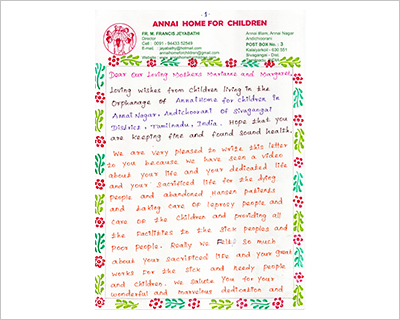 - 1 -
ANNAI HOME FOR CHILDREN
FR. M. FRANCIS JEYABATH
Director
Cell : 0091 - 94433 52949
E-mail : jeyabathy@hotmail.com
annaihomeforchildren@gmail.com
Annai Illam, Annai Nagar
Andichioorani
POST BOX No. : 3
Kalaiyarkoil - 630 551
Sivagangai - Dist.
Dear Our Loving Mothers Marianne and Margaret,
Loving wishes from Children living in the
Orphanage of Annai Home for Children in
Annai Nagar, Andichoorani Of Sivagangai
District, Tamilnadu, India. Hope that you
are keeping fine and found sound health.
We are very pleased to write this letter
to you because we have seen a video
about your life and your dedicated life
and your sacrificed life for the dying
people and abandoned Hansen patients
and taking care Of leprosy people and
care Of the Children and providing all
the facilities to the sick peoples and
poor people. Really we Felt so much
about your sacrificed life and your great
works for the sick and needy people
and children. We salute You for your
wonderful and marvelous dedication and